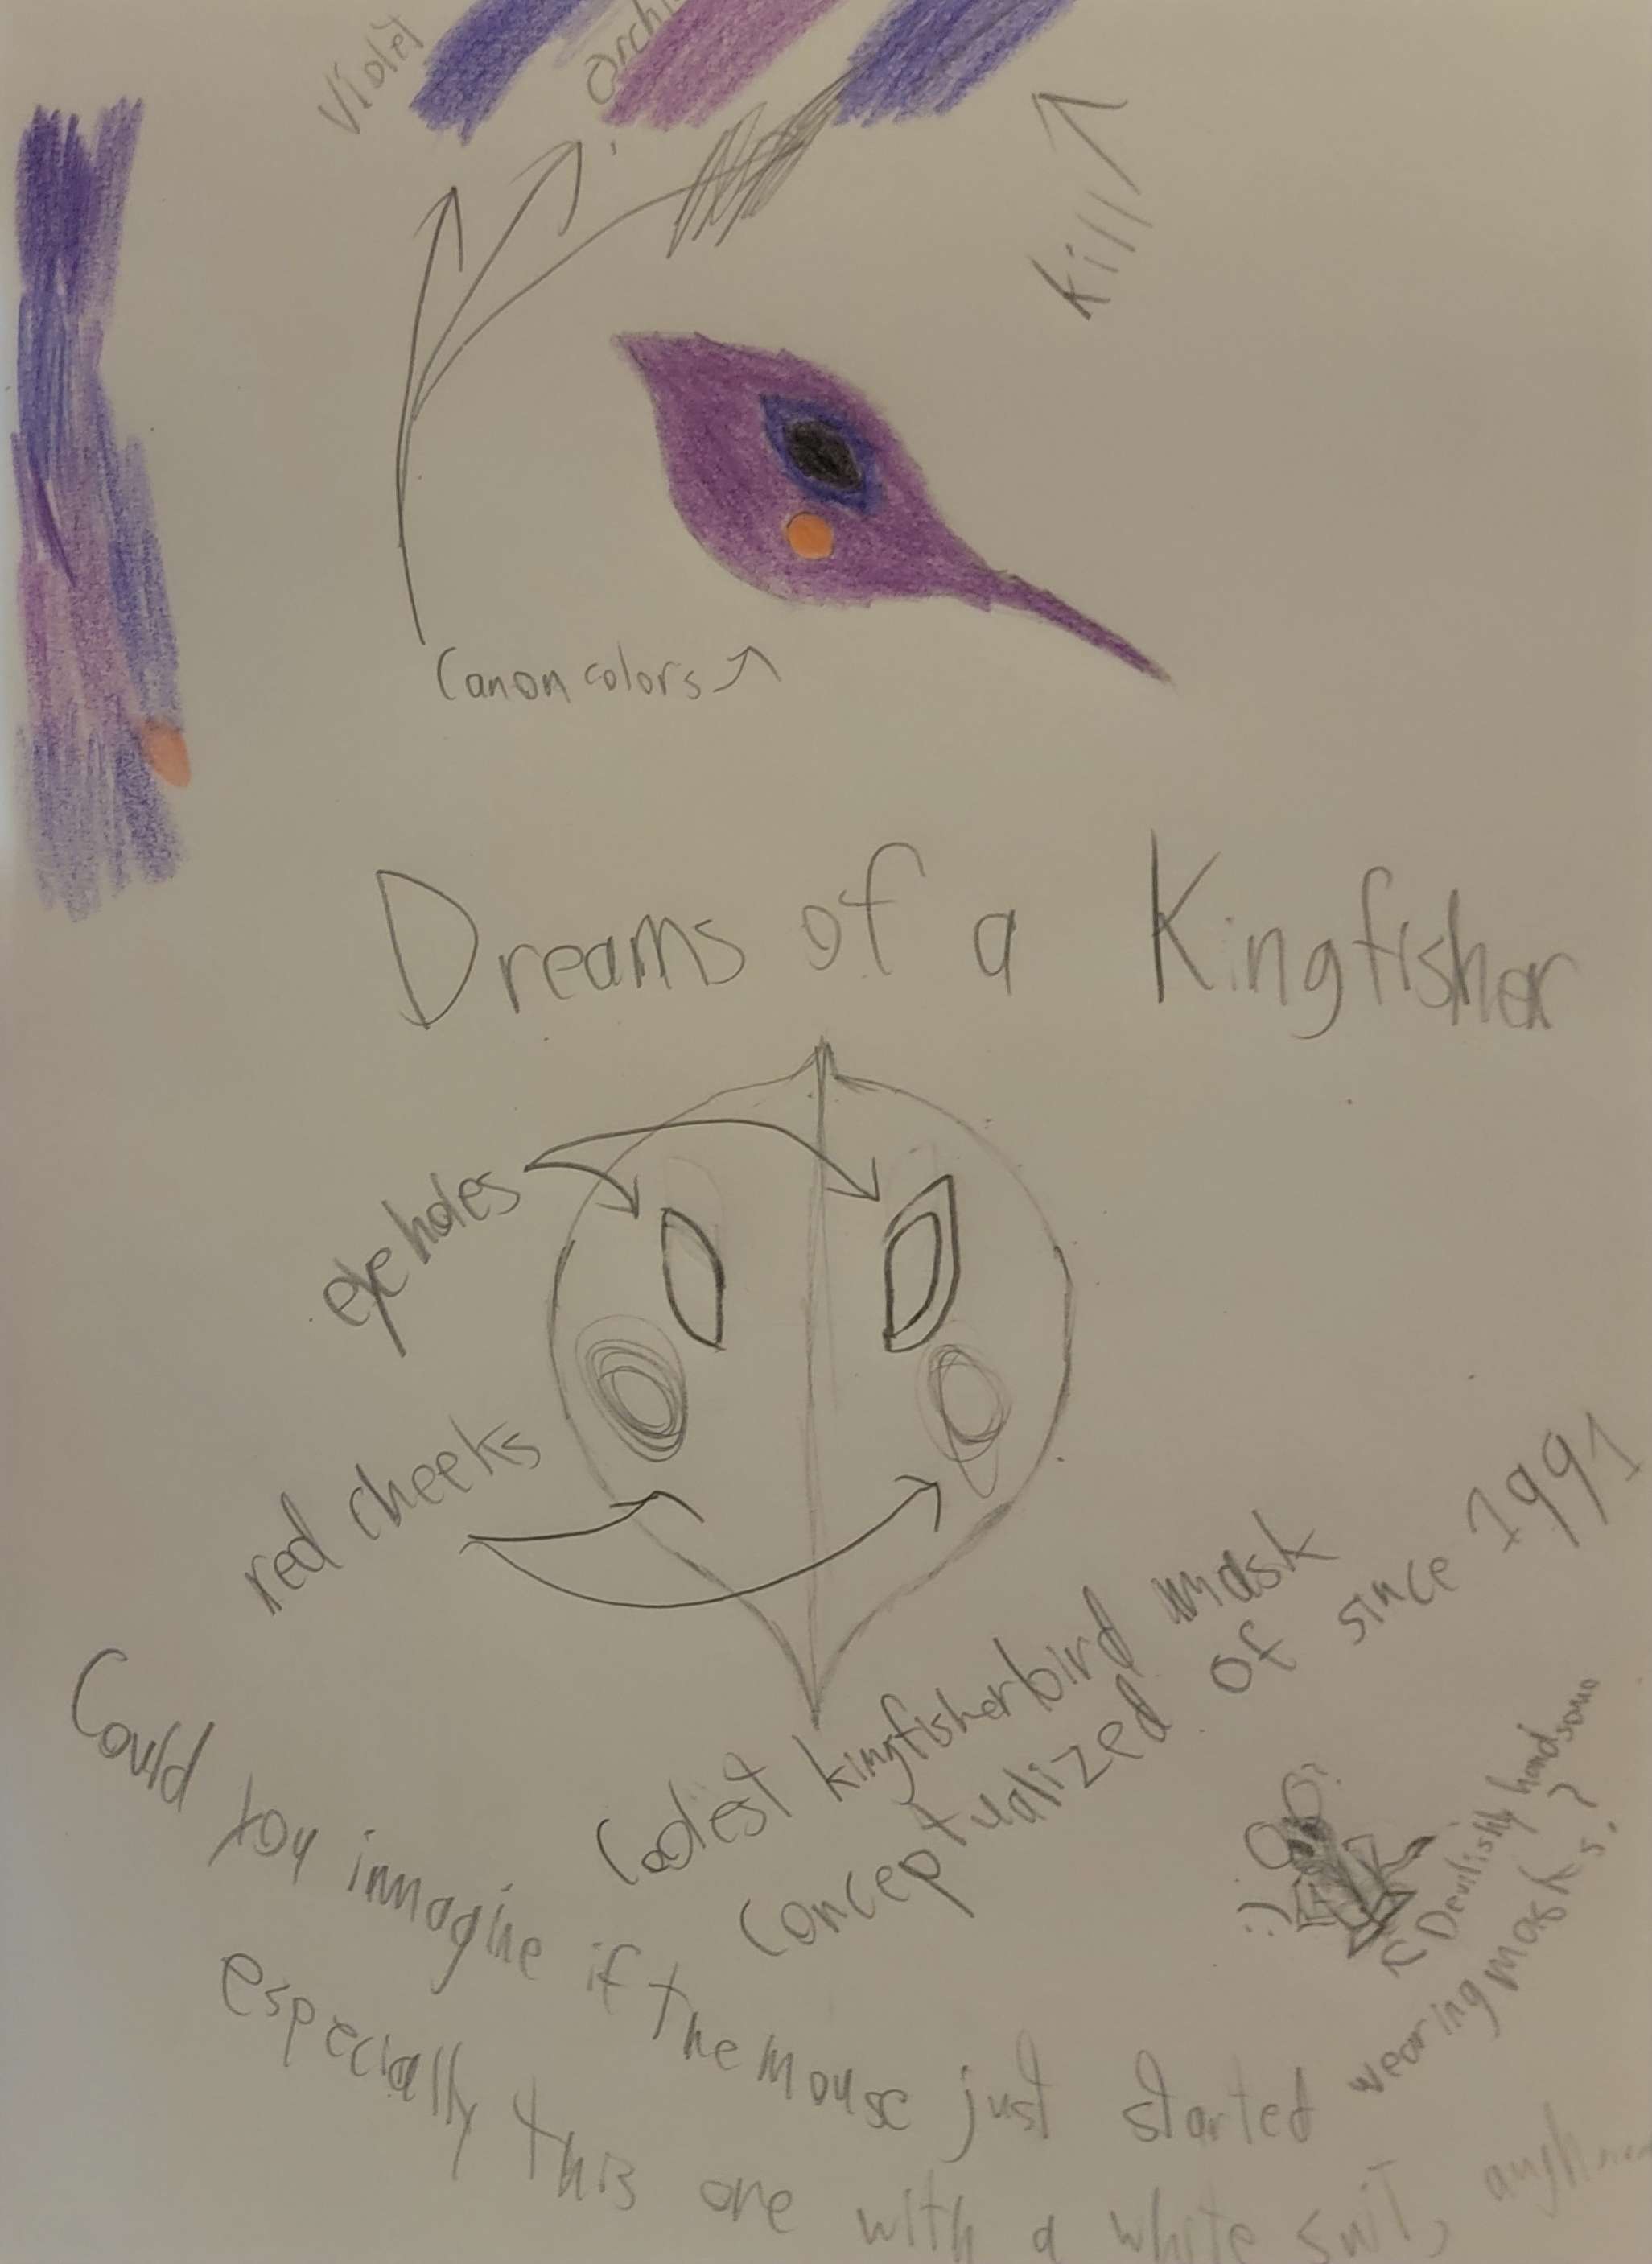 Violet
kill
Canon colors
Dreams of a Kingfisher
eye holes
red cheeks
Coolest kingfisher bird mask
conceptualized of since 1991
:)
Devilishly handsome
Could you inmagine if the mouse just started wearing masks?
especially this one with a white suit,